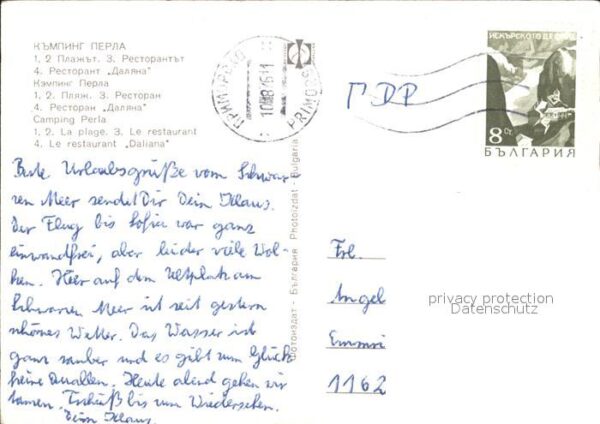 КЪМПИНГ ПЕРЛА
1, 2 Плажът. 3. Ресторантът
4. Ресторант „Даляна"
Кэмпинг Перла
1, 2. Пляж. 3. Ресторан
4. Ресторан „Даляна"
Camping Perla
1, 2. La plage. 3. Le restaurant
4. Le restaurant „Daliana"
Фотоиздат - България Photoizdat - Bulgaria
ПРИМОРСКО
PRIMORSKO
ИСКЪРСКОТО ДЕФИЛЕ
8 СТ.
БЪЛГАРИЯ
ГДР
Beste Urlaubsgrüße vom Schwar-
zen Meer sendet Dir Dein Klaus.
Der Flug bis Sofia war ganz
einwandfrei, aber leider viele Wol-
ken. Hier auf dem Zeltplatz am
Schwarzen Meer ist seit gestern
schönes Wetter. Das Wasser ist
ganz sauber und es gibt zum Glück
keine Quallen. Heute abend gehen wir
tanzen. Tschüß bis zum Wiedersehen.
Dein Klaus.
Frl.
Angel
1162
privacy protection
Datenschutz